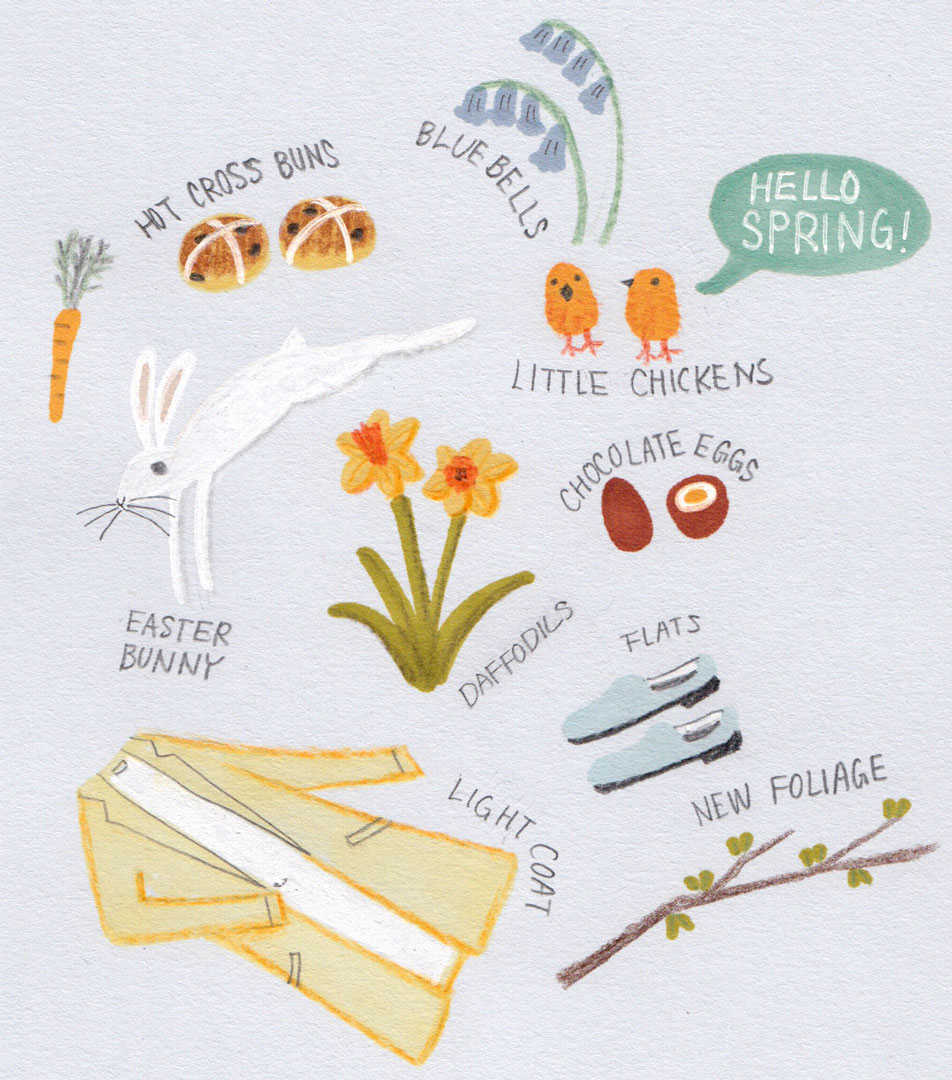 BLUE BELLS
HOT CROSS BUNS
HELLO
SPRING!
LITTLE CHICKENS
CHOCOLATE EGGS
EASTER
BUNNY
DAFFODILS
FLATS
LIGHT COAT
NEW FOLIAGE